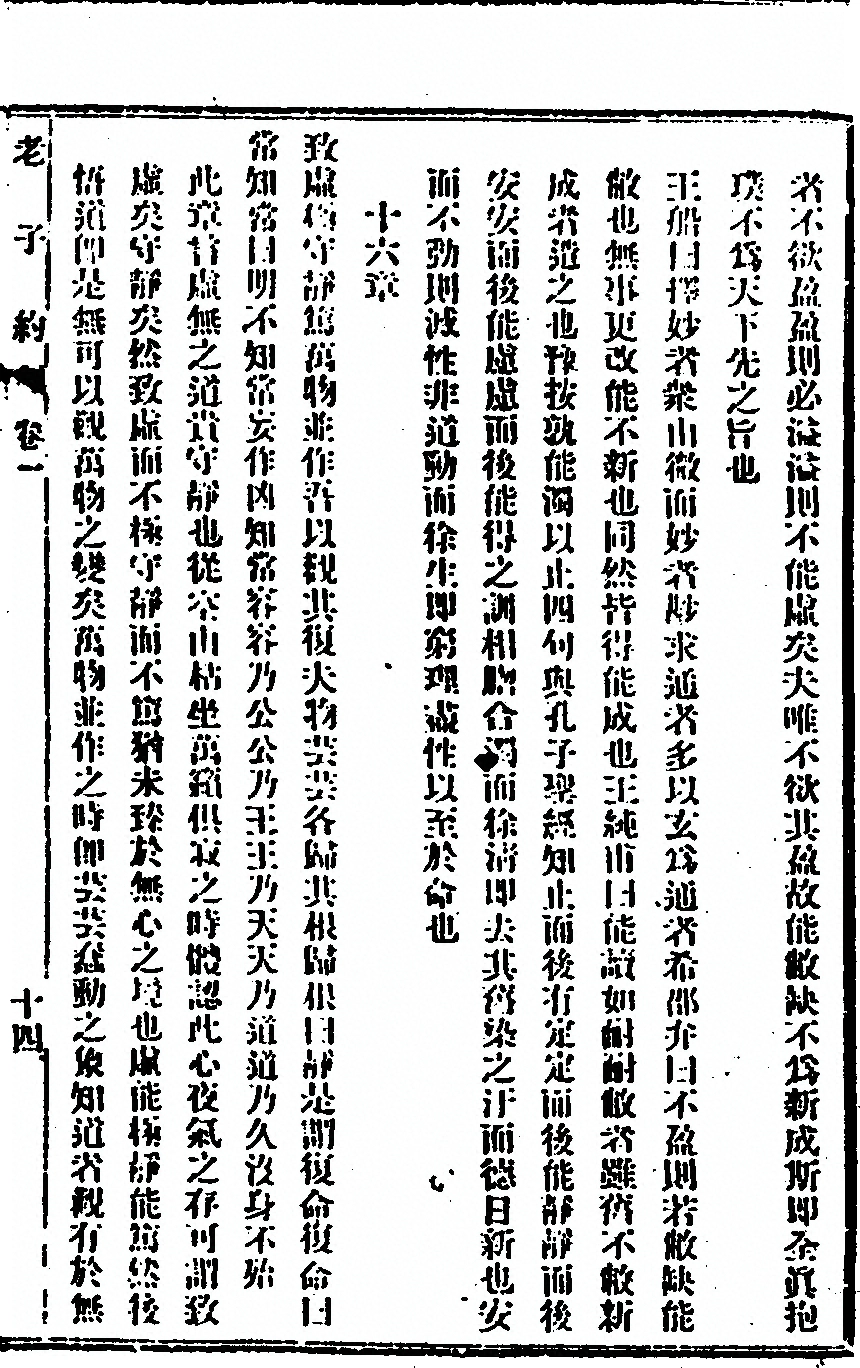 者不欲盈盈則必溢溢則不能虛矣夫唯不欲其盈故能敝缺不爲新成斯卽全眞抱
璞不爲天下先之旨也
王船曰擇妙者衆由微而妙者尠求通者多以玄爲通者希邵弁曰不盈則若敝缺能
敝也無事更改能不新也同然皆得能成也王純甫曰能讀如耐耐敝者雖舊不敝新
成者造之也豫按孰能濁以止四句與孔子聖經知止而後有定定而後能靜靜而後
安安而後能慮慮而後能得之訓相脗合濁而徐淸卽去其舊染之汙而德日新也安
而不動則滅性非道動而徐生卽窮理盡性以至於命也
十六章
致虛極守靜篤萬物並作吾以觀其復夫物芸芸各歸其根歸根曰靜是謂復命復命曰
常知常曰明不知常妄作凶知常容容乃公公乃王王乃天天乃道道乃久沒身不殆
此章言虛無之道貴守靜也從空山枯坐萬籟俱寂之時體認此心夜氣之存可謂致
虛矣守靜矣然致虛而不極守靜而不篤猶未臻於無心之境也虛能極靜能篤然後
悟道卽是無可以觀萬物之變矣萬物並作之時卽芸芸蠢動之象知道者觀有於無
老子約
卷一
十四